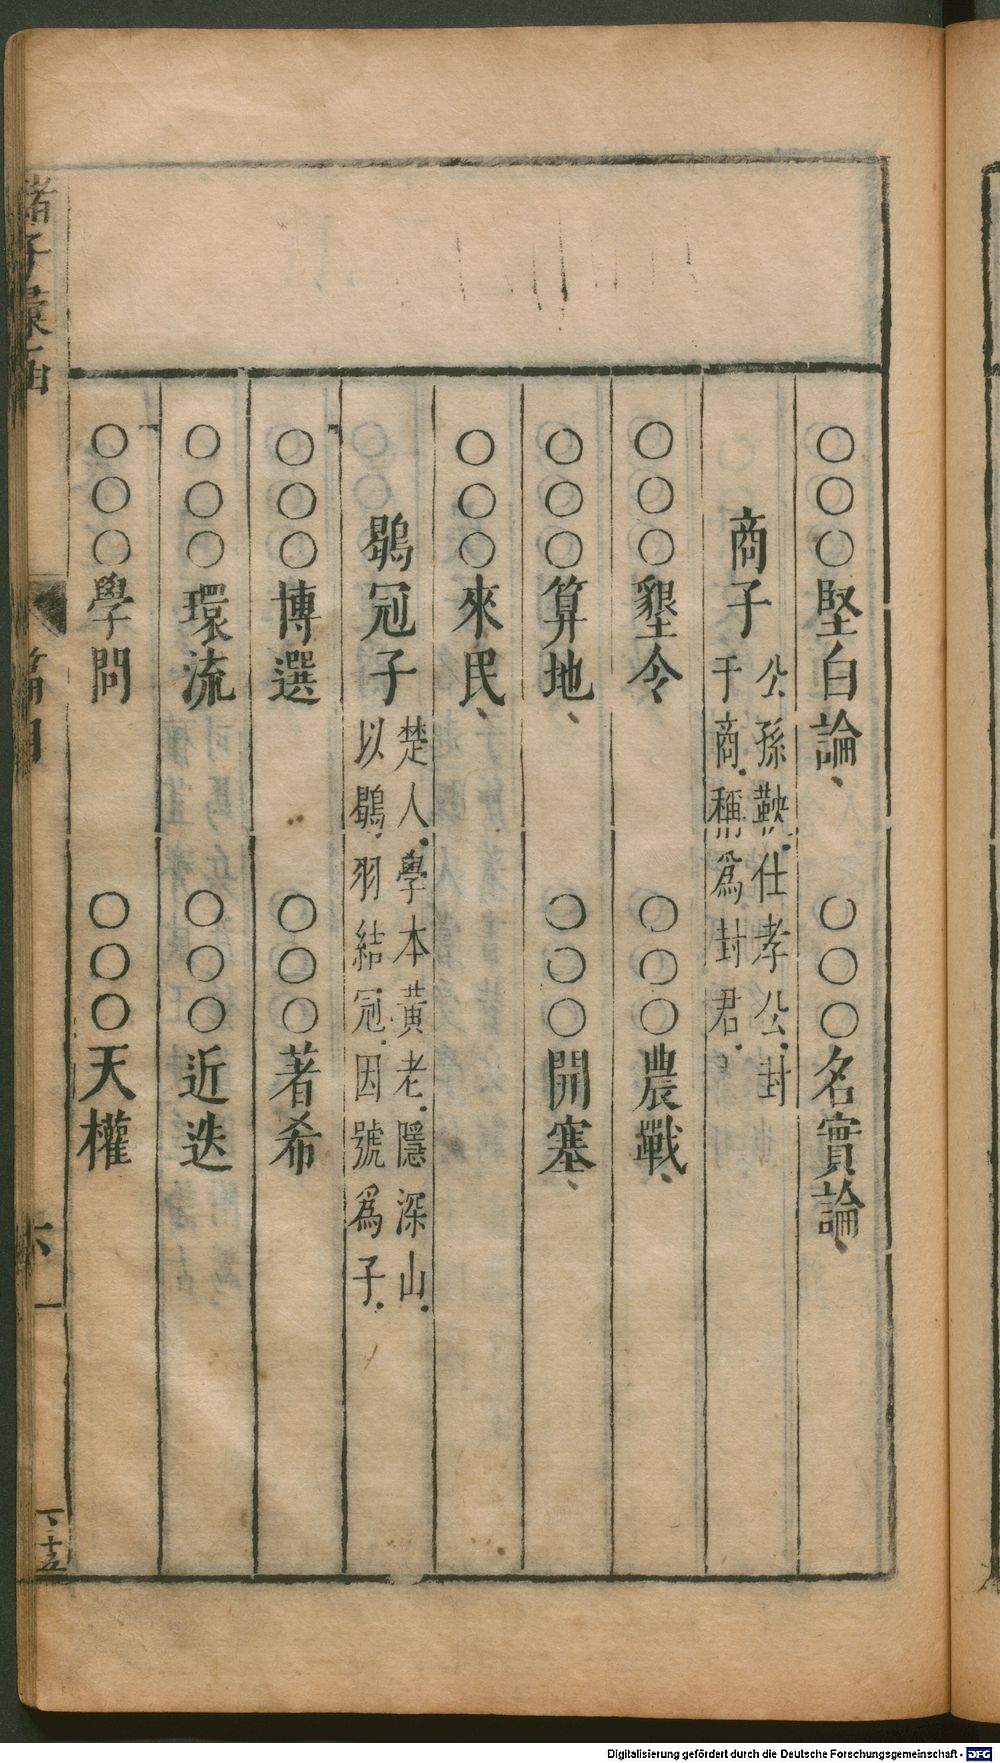 ○○○堅白論、　○○○名實論、
商子　公孫鞅.仕孝公.封
于商.稱爲封君.
○○○墾令　○○○農戰、
○○○算地、　○○○開塞、
○○○來民、
鶡冠子　楚人.學本黃老.隱深山.
以鶡.羽結冠.因號爲子.
○○○博選　○○○著希
○○○環流　○○○近迭
○○○學問　○○○天權
諸子彙函
Digitalisierung gefördert durch die Deutsche Forschungsgemeinschaft - DFG